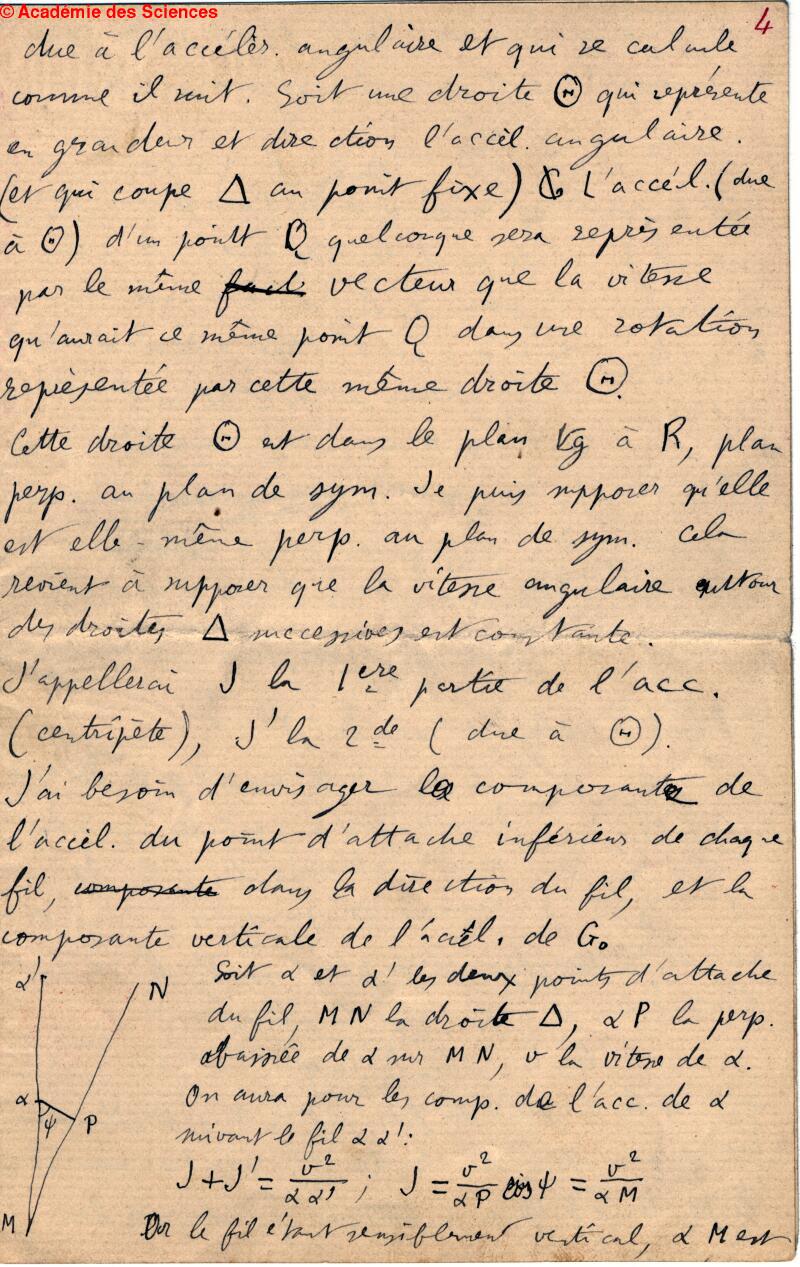 © Académie des Sciences
4
due à l'accélér. angulaire et qui se calcule
comme il suit. Soit une droite Θ qui représente
en grandeur et direction l'accél. angulaire.
(et qui coupe Δ au point fixe) L'accél. (due
à Θ) d'un point Q quelconque sera représentée
par le même vecteur que la vitesse
qu'aurait ce même point Q dans une rotation
représentée par cette même droite Θ.
Cette droite Θ est dans le plan tg à R, plan
perp. au plan de sym. Je puis supposer qu'elle
est elle-même perp. au plan de sym. Cela
revient à supposer que la vitesse angulaire autour
des droites Δ successives est constante.
J'appellerai J la 1ère partie de l'acc.
(centripète), J' la 2de (due à Θ).
J'ai besoin d'envisager la composante de
l'accél. du point d'attache inférieur de chaque
fil, composante dans la direction du fil, et la
composante verticale de l'accél. de G.
Soit α et α' les deux points d'attache
du fil, MN la droite Δ, αP la perp.
abaissée de α sur MN, v la vitesse de α.
On aura pour les comp. de l'acc. de α
suivant le fil αα':
J + J' = v²/αα' ; J = v²/αP cos ψ = v²/αM
Or le fil étant sensiblement vertical, αM est
α'
N
α
ψ
P
M